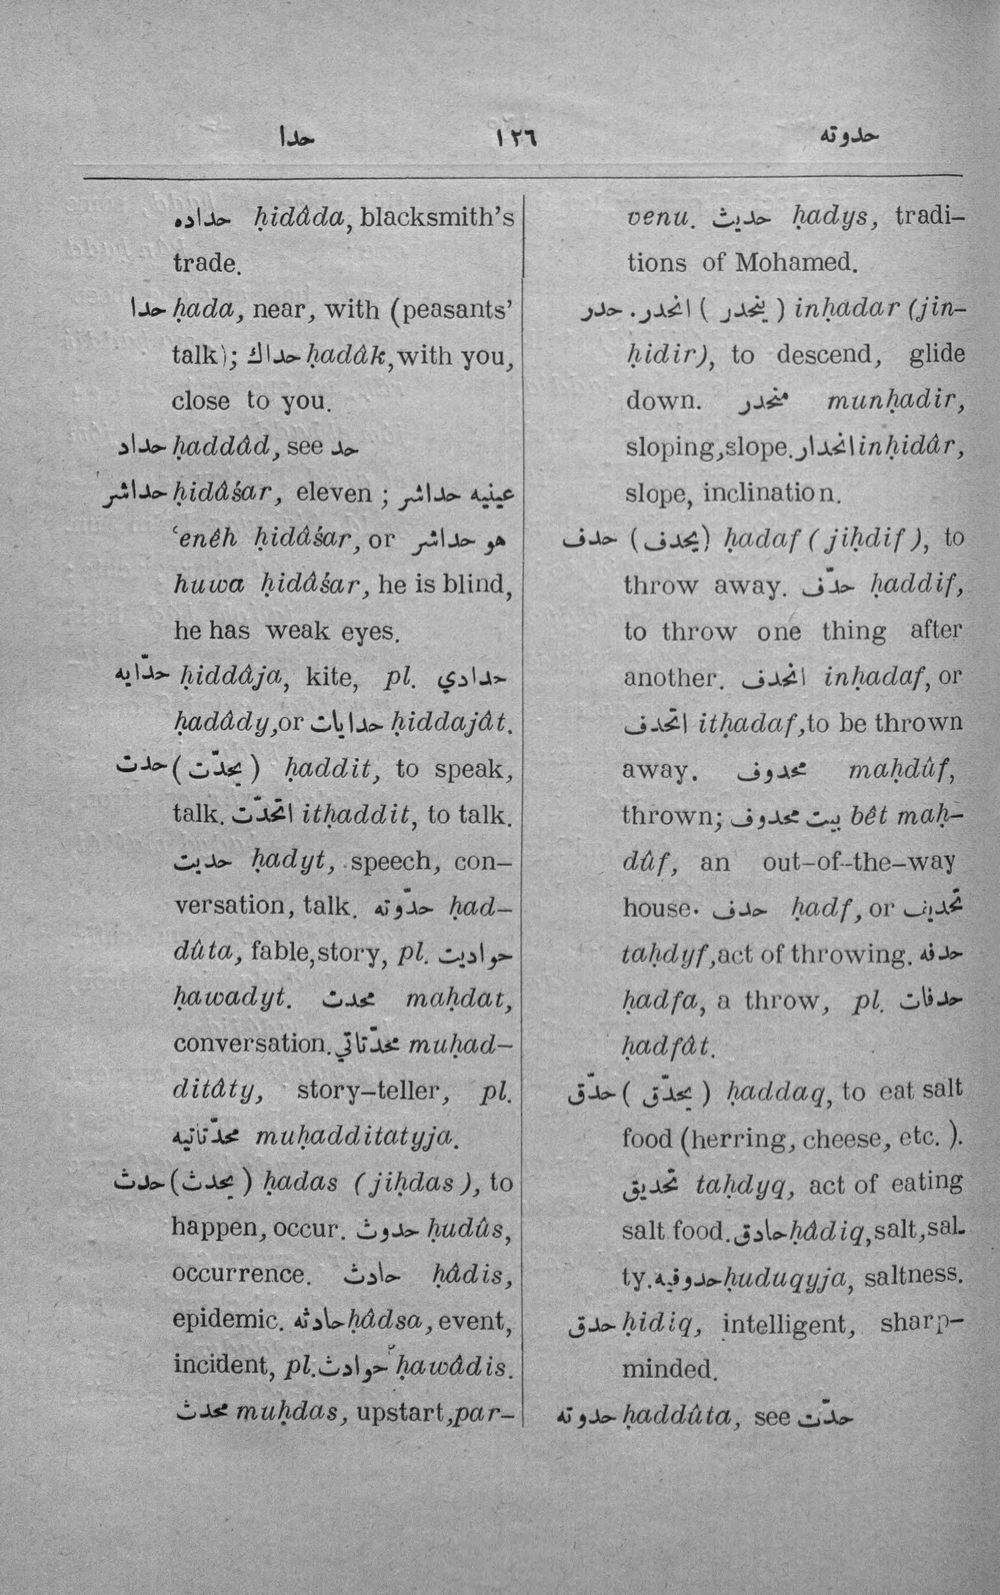 حدا ١٢٦ حدوته
حداده ḥidâda, blacksmith's
trade.
حدا ḥada, near, with (peasants'
talk); حداك ḥadâk, with you,
close to you.
حداد ḥaddâd, see حد
حداشر ḥidâśar, eleven ; عينيه حداشر
ʿenêh ḥidâśar, or هو حداشر
huwa ḥidâśar, he is blind,
he has weak eyes.
حدّايه ḥiddâja, kite, pl. حدادي
ḥadâdy, or حدايات ḥiddajât.
حدت (يحدّت) ḥaddit, to speak,
talk. اتحدّت itḥaddit, to talk.
حديت ḥadyt, speech, con-
versation, talk. حدّوته ḥad-
dûta, fable, story, pl. حواديت
ḥawadyt. محدت maḥdat,
conversation. محدّتاتي muḥad-
ditâty, story-teller, pl.
محدّتاتيه muḥadditatyja.
حدث (يحدث) ḥadas (jiḥdas), to
happen, occur. حدوث ḥudûs,
occurrence. حادث ḥâdis,
epidemic. حادثه ḥâdsa, event,
incident, pl. حوادث ḥawâdis.
محدث muḥdas, upstart, par-
venu. حديث ḥadys, tradi-
tions of Mohamed.
حدر . انحدر (ينحدر) inḥadar (jin-
ḥidir), to descend, glide
down. منحدر munḥadir,
sloping, slope. انحدار inḥidâr,
slope, inclination.
حدف (يحدف) ḥadaf (jiḥdif), to
throw away. حدّف ḥaddif,
to throw one thing after
another. انحدف inḥadaf, or
اتحدف itḥadaf, to be thrown
away. محدوف maḥdûf,
thrown; بيت محدوف bêt maḥ-
dûf, an out-of-the-way
house. حدف ḥadf, or تحديف
taḥdyf, act of throwing. حدفه
ḥadfa, a throw, pl. حدفات
ḥadfât.
حدّق (يحدّق) ḥaddaq, to eat salt
food (herring, cheese, etc.).
تحديق taḥdyq, act of eating
salt food. حادق ḥâdiq, salt, sal-
ty. حدوقيه ḥuduqyja, saltness.
حدق ḥidiq, intelligent, sharp-
minded.
حدوته ḥaddûta, see حدّت